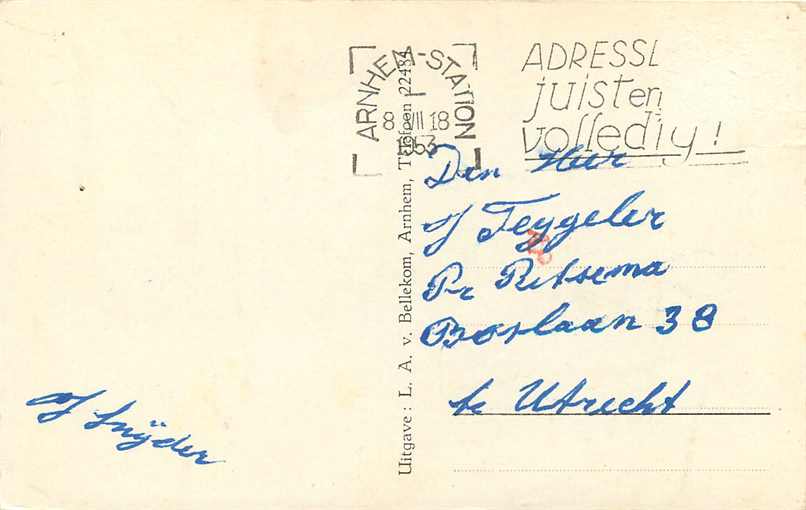 ARNHEM-STATION
8 VII 18
1953
ADRESSE
juist en
volledig!
Den Heer
J Teygeler
Pr Ritsema
Boslaan 38
te Utrecht
J Snijder
Uitgave: L. A. v. Bellekom, Arnhem, Telefoon 22484